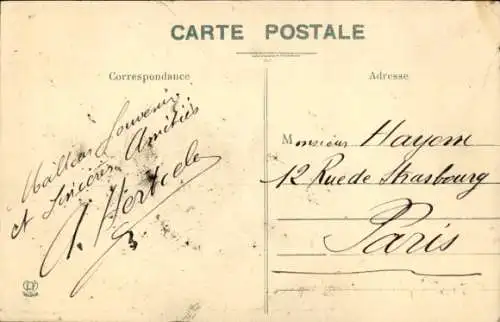 CARTE POSTALE
Correspondance
Adresse
Souvenirs
et Sincères Amitiés
Monsieur Hayem
12 Rue de Strasbourg
Paris